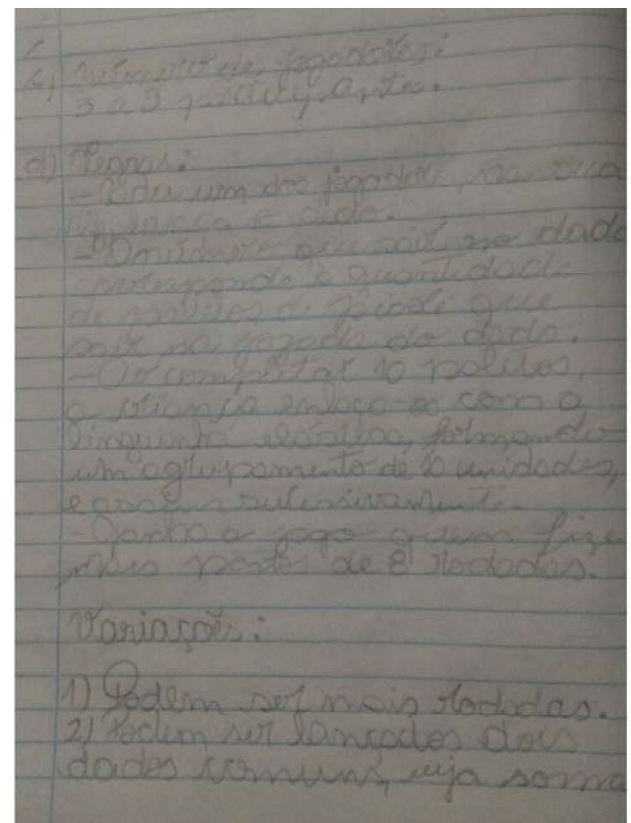 c) Número de jogadores:
3 a 5 participantes.
d) Regras:
- Cada um dos jogadores, na sua
vez, lança o dado.
- O número que sair no dado
corresponde à quantidade
de palitos de picolé que
sair na jogada do dado.
- Ao completar 10 palitos,
a criança enlaça-os com a
linguinha elástica, formando
um agrupamento de 10 unidades,
e assim sucessivamente.
- Ganha o jogo quem fize
mais pontos de 8 rodadas.
Variações:
1) Podem ser mais rodadas.
2) Podem ser lançados dois
dados comuns, cuja soma